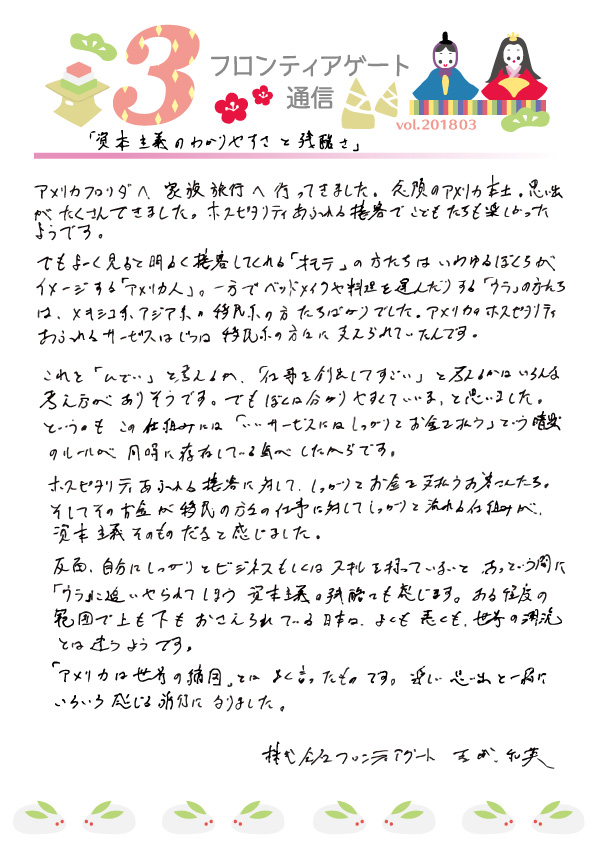 3
フロンティアゲート
通信
vol.201803
「資本主義のわかりやすさと残酷さ」
アメリカフロリダへ、家族旅行へ行ってきました。念願のアメリカ本土。思い出
がたくさんできました。ホスピタリティあふれる接客でこどもたちも楽しかった
ようです。
でもよーく見ると明るく接客してくれる「オモテ」の方たちはいわゆるぼくらが
イメージする「アメリカ人」。一方でベッドメイクや料理を運んだりする「ウラ」の方たち
は、メキシコ系、アジア系の移民系の方たちばかりでした。アメリカのホスピタリティ
あふれるサービスはじつは移民系の方々に支えられていたんです。
これを「ひどい」と考えるか、「仕事を創出してすごい」と考えるかはいろんな
考え方がありそうです。でもぼくは分かりやすくていいな、と思いました。
というのもこの仕組みには「いいサービスにはしっかりとお金を払う」という暗黙
のルールが同時に存在している気がしたからです。
ホスピタリティあふれる接客に対して、しっかりとお金を支払うお客さんたち。
そしてそのお金が移民の方々の仕事に対してしっかりと流れる仕組みが、
資本主義そのものだなと感じました。
反面、自分にしっかりとビジネスもしくはスキルを持っていないと、あっという間に
「ウラ」に追いやられてしまう資本主義の残酷さも感じます。ある程度の
範囲で上も下もおさえられている日本は、よくも悪くも、世界の潮流
とは違うようです。
「アメリカは世界の縮図」とはよく言ったものです。楽しい思い出と一緒に
いろいろ感じる旅行になりました。
株式会社フロンティアゲート